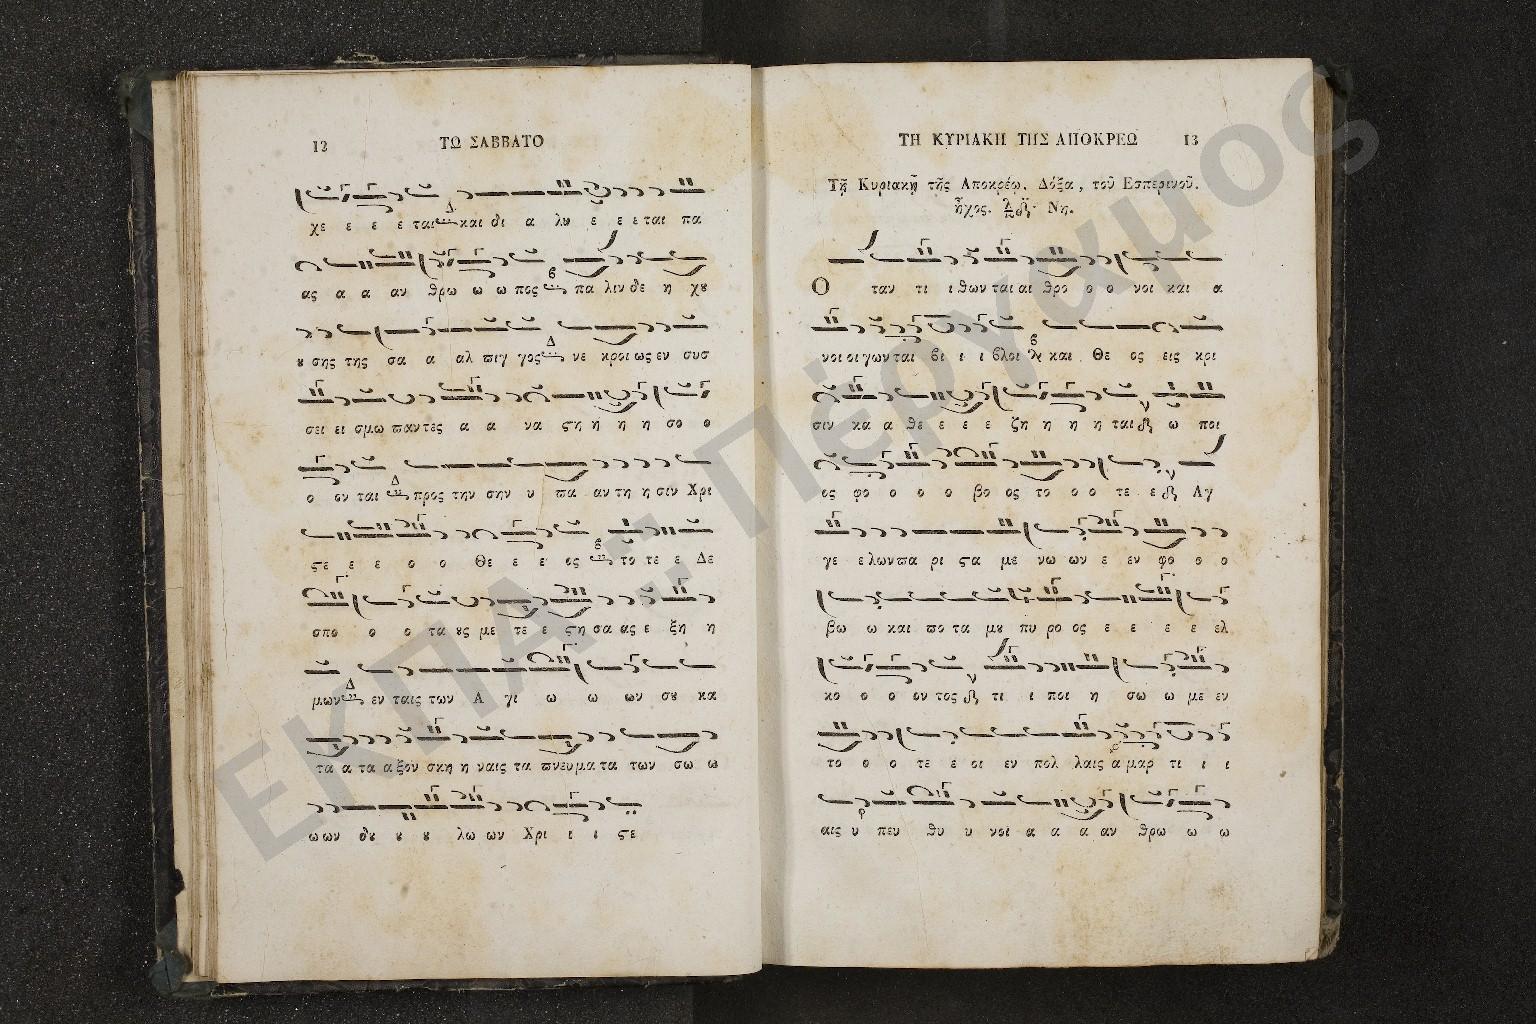 12 ΤΩ ΣΑΒΒΑΤΟ
χε ε ε ε ται Δ και δι α λυ ε ε ε ται πα
ας α α αν θρω ω ω πος β πα λιν δε η χȣ
ȣ σης της σα α αλ πιγ γος Δ νε κροι ως εν συσ
σει ει σμω παντες α α να ϛη ή ή η σο ο
ο ον ται Δ προς την σην υ πα αν τη η σιν Χρι
ϛε ε ε ο ο Θε ε ε ος β το τε ε Δε
σπο ο ο τα ȣς με τε ε ϛη σα ας ε ξη η
μων Δ εν ταις των Α γι ω ω ων σȣ κα
τα α τα α ξον σκη η ναις τα πνευμα τα των σω ω
ω ων δȣ ȣ ȣ λω ων Χρι ι ι ϛε
ΤΗ ΚΥΡΙΑΚΗ ΤΗΣ ΑΠΟΚΡΕΩ 13
Τῇ Κυριακῇ τῆς Αποκρέω. Δόξα, τοῦ Εσπερινοῦ.
ἦχος. Νη.
Ο ταν τι ι θων ται αι θρο ο ο νοι και α
νοι οι γων ται βι ι ι βλοι και Θε ος εις κρι
σιν κα α θε ε ε ε ζη η η η ται ω ποι
ος φο ο ο ο βο ος το ο ο τε ε Αγ
γε ε λων πα ρι ϛα με νω ων ε εν φο ο ο
βω ω και πο τα μȣ πυ ρο ος ε ε ε ε ελ
κο ο ο ον τος τι ι ποι η σω ω με εν
το ο ο τε ε οι εν πολ λαις α μαρ τι ι ι
αις υ πευ θυ υ νοι α α α αν θρω ω ω
ΕΚΠΑ - Πέργαμος